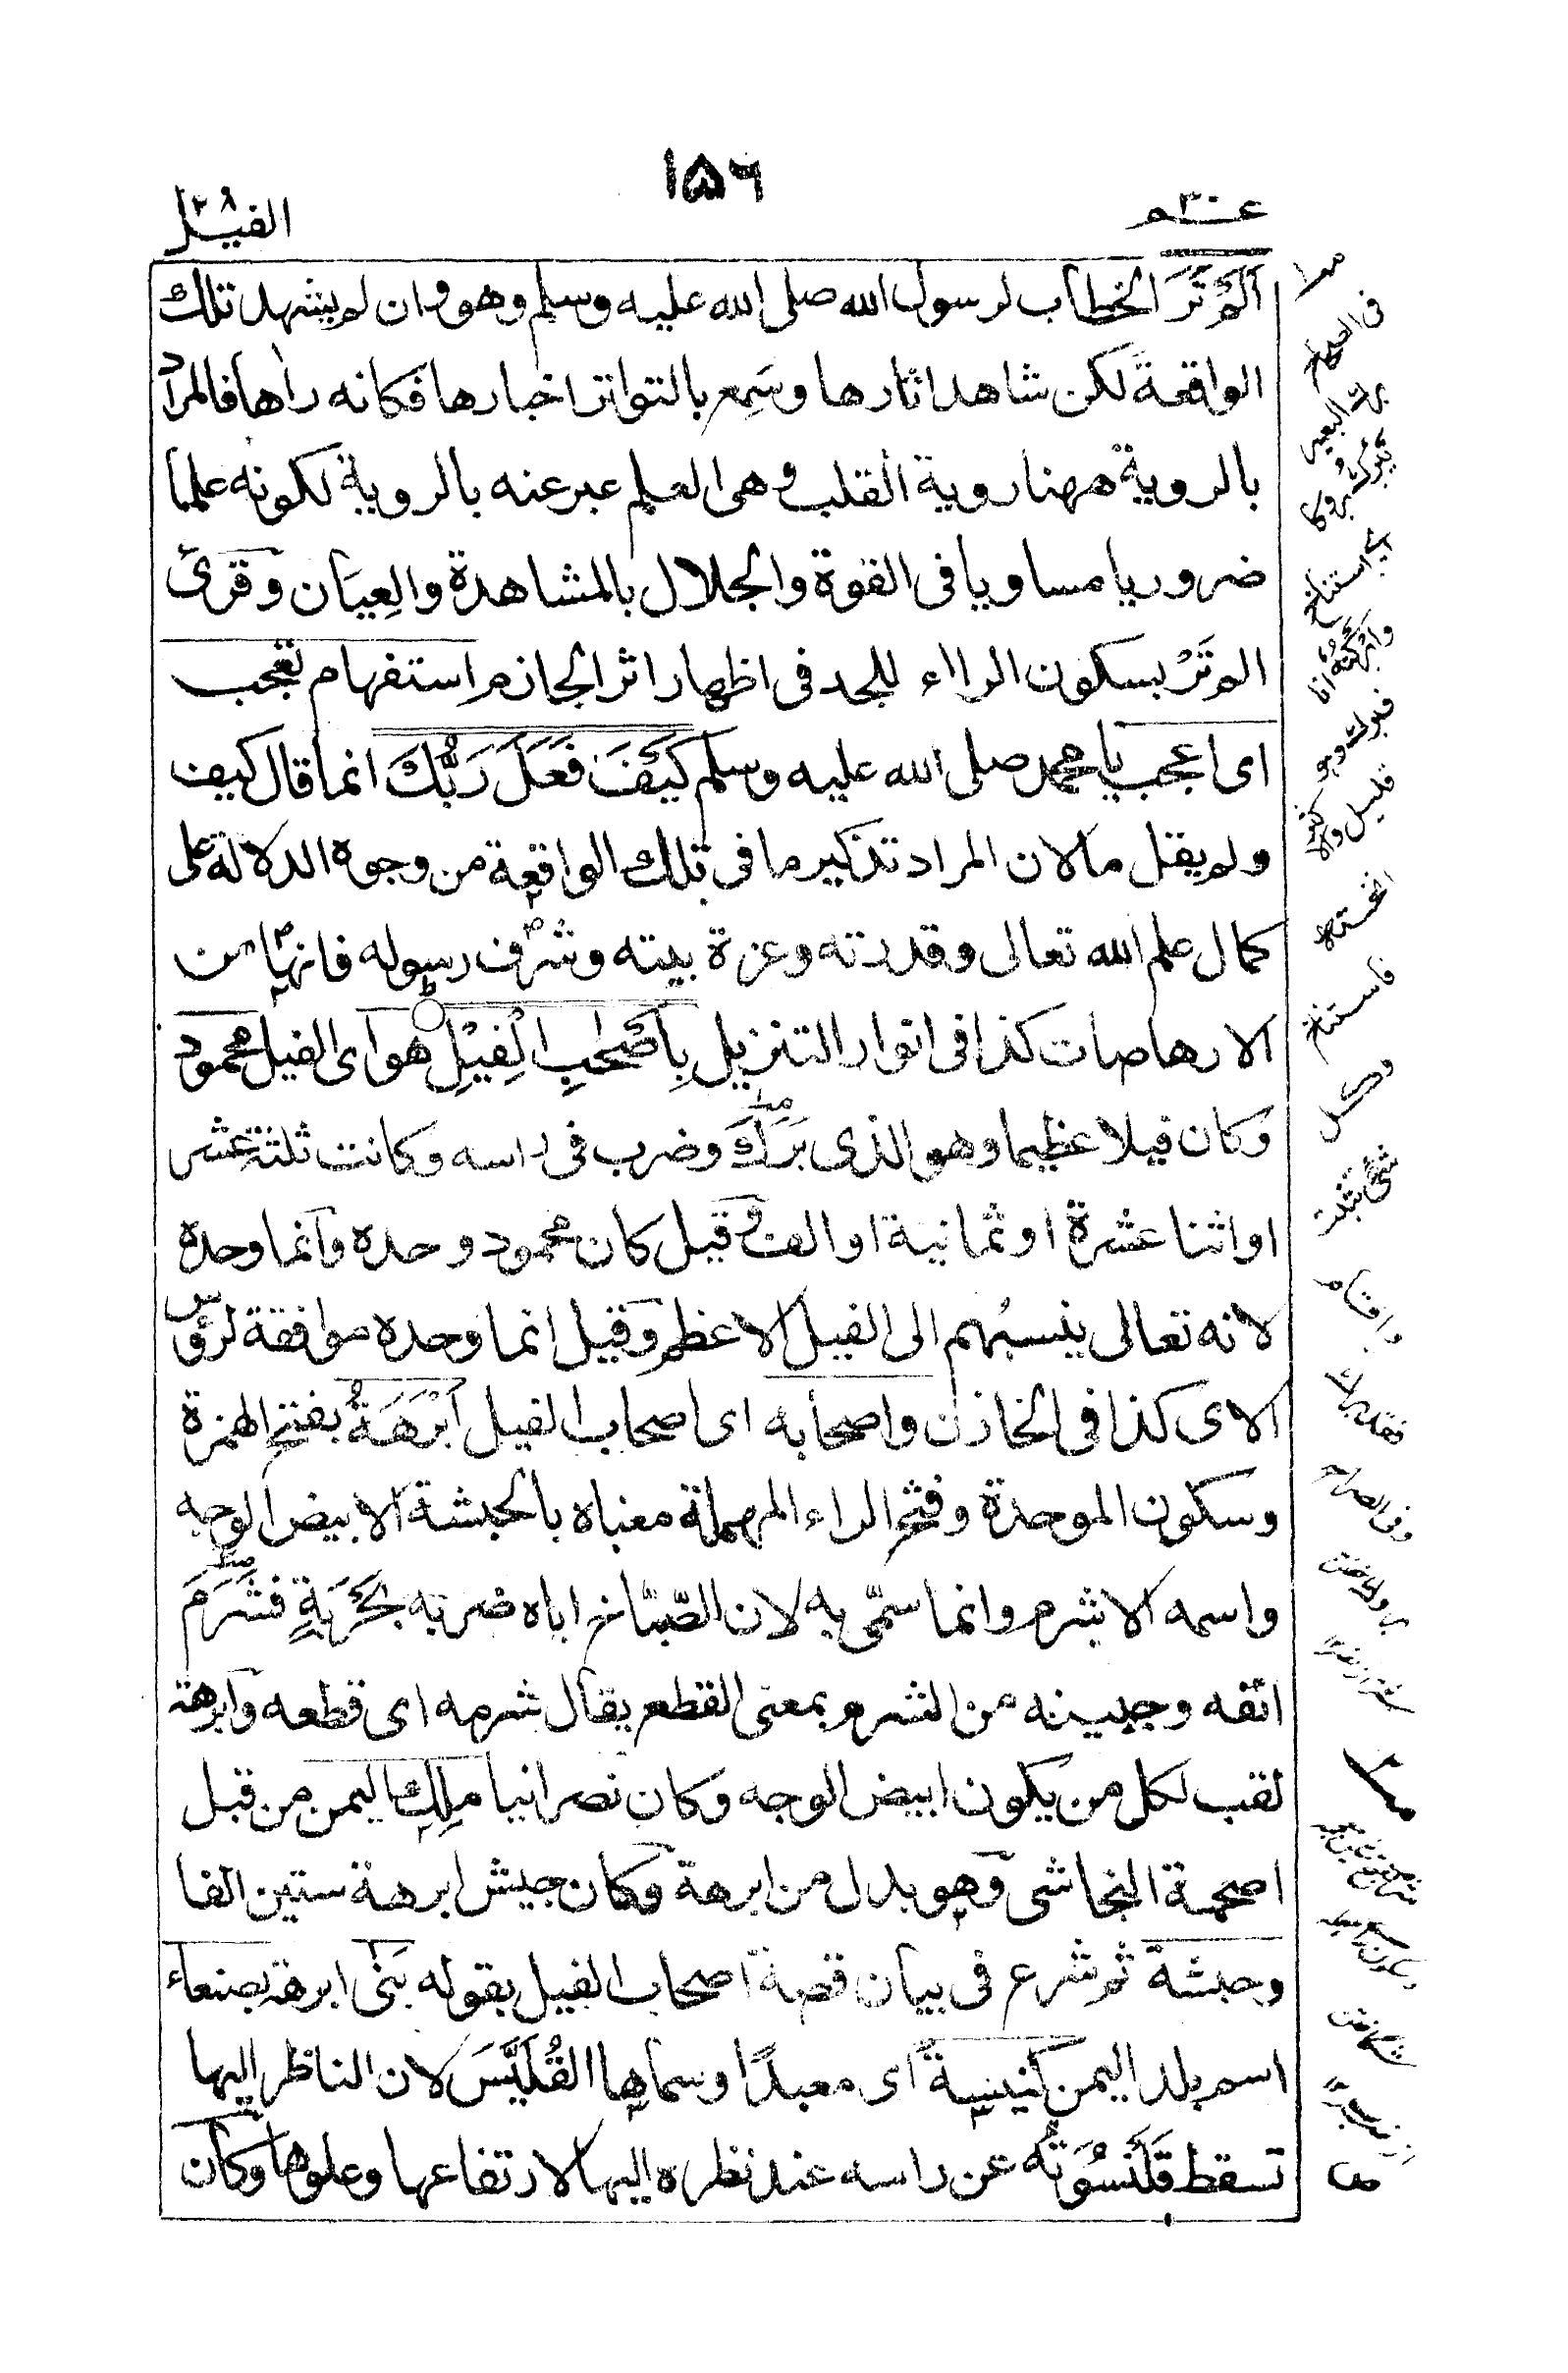 ١٥٦
عــ٣٠ـم
الفيل
اَلَمْ تَرَ الخطاب لرسول الله صلى الله عليه وسلم وهو وان لم يشهد تلك
الواقعة لكن شاهد اثارها وسَمِع بالتواتر اخبارها فكانه راها فالمراد
بالروية ههنا روية القلب وهى العلم عبر عنه بالروية لكونه علما
ضروريا مساويا فى القوة والجلال بالمشاهدة والعِيَان وقرئ
الم تَرْ بسكون الراء للجد فى اظهار اثر الجازم استفهام تعجب
اى اعجب يا محمد صلى الله عليه وسلم كَيْفَ فَعَلَ رَبُّكَ انما قال كيف
ولم يقل ما لان المراد تذكير ما فى تلك الواقعة من وجوه الدلالة على
كمال علم الله تعالى وقدرته وعزة بيته وشرف رسوله فانها من
الارهاصات كذا فى انوار التنزيل بِاَصْحٰبِ الْفِيْلِ هو اى الفيل محمود
وكان فيلا عظيما وهو الذى بَرَكَ وضرب فى راسه وكانت ثلثة عشر
او اثنا عشرة او ثمانية او الف وقيل كان محمود وحده وانما وحده
لانه تعالى ينسبُهم الى الفيل الاعظم وقيل انما وحده موافقة لرؤس
الاى كذا فى الخازن واصحابه اى اصحاب الفيل اَبْرَهَةُ بفتح الهمزة
وسكون الموحدة وفتح الراء المهملة معناه بالحبشة الابيض الوجه
واسمه الاشرم وانما سمّى به لان الصّبّاح اباه ضربه بحَرْبَةٍ فشَرَمَ
انفه وجبينه من الشرم بمعنى القطع يقال شرمه اى قطعه وابرهة
لقب لكل من يكون ابيض الوجه وكان نصرانيا مَلِك اليمن من قبل
اصحمة النجاشى وهو بدل من ابرهة وكان جيش ابرهة ستين الفا
وحبشة ثم شرع فى بيان قصة اصحاب الفيل بقوله بَنٰى ابرهة بصنعاء
اسم بلد اليمن كنيسة اى معبدًا وسماها القُلَيَّسَ لان الناظر اليها
تسقط قَلَنْسُوَتُه عن راسه عند نظره اليها لارتفاعها وعلوها وكان
فى الصحاح
برك البعير
يبرُك بروكا
اى استناخ
وابركتُه انا
فبرك وهو
قليل والاكثر
انخته
فاستناخ
وكل
شئ ثبت
واقام
فقد برك